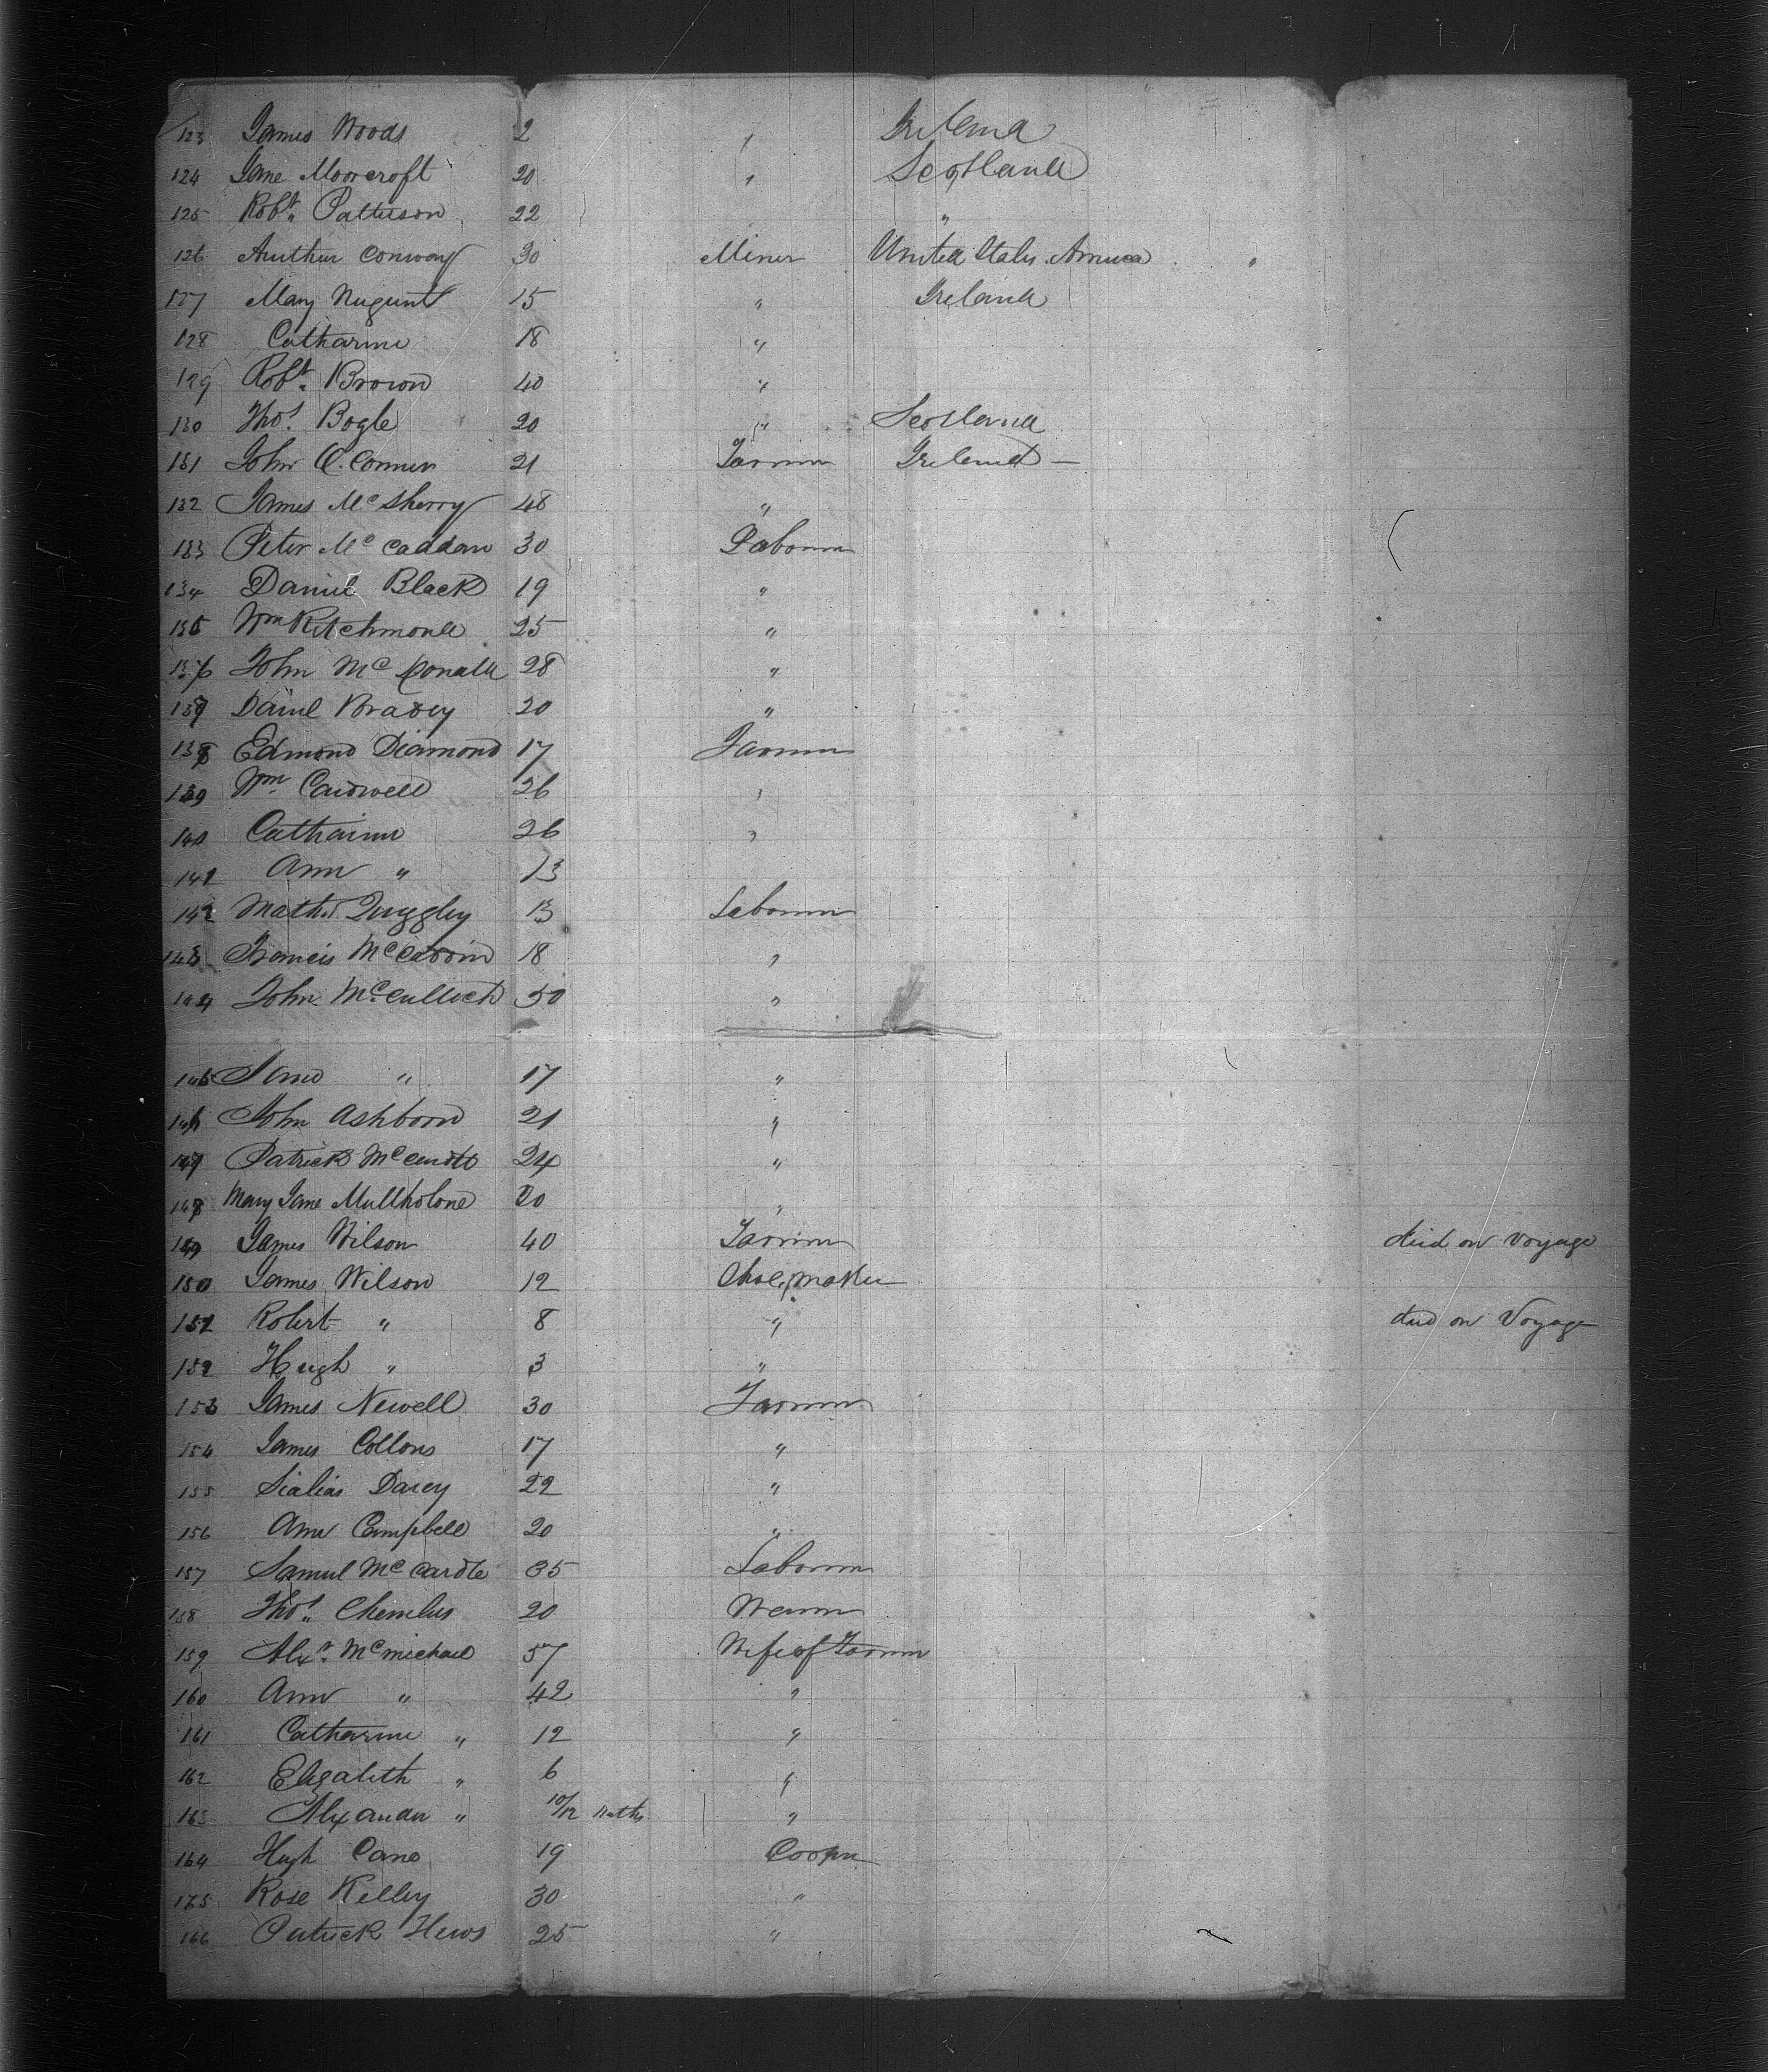 123 James Woods 2 " Ireland
124 Jane Moorcroft 20 " Scotland
125 Robt. Patterson 22 "
126 Arthur Conway 30 Miner United States America "
127 Mary Nugent 15 " Ireland
128 Catharine 18 "
129 Robt. Brown 40 "
130 Thos. Bogle 20 " Scotland
131 John O. Conner 21 Farmer Ireland —
132 James Mc Sherry 48 "
133 Peter Mc Caddam 30 Labourer
134 Daniel Black 19 "
135 Wm Ritchmond 25 "
136 John Mc Donald 28 "
137 Daniel Bradey 20 "
138 Edmond Diamond 17 Farmer
139 Wm. Caldwell 26 "
140 Catharine 26 "
141 Ann " 13
142 Mathw Quggley 13 Labourer
143 Francis 18 "
144 John McCulloch 50 "
145 " 17 "
146 John Ashborn 21 "
147 Patrick 24 "
148 Mary Jane Mullholone 20 "
149 James Wilson 40 Farmer died on voyage
150 James Wilson 12 Shoe maker
151 Robert " 8 " died on Voyage
152 Hugh " 3 "
153 James Newell 30 Farmer
154 James Collons 17 "
155 Darcy 22 "
156 Ann Campbell 20 "
157 Samuel Mc Cardle 35 Labourer
158 Thos. 20 Weaver
159 Alexr. Mc michael 57 Wife of Farmer
160 Ann " 42 "
161 Catharine " 12 "
162 Elizabeth " 6 "
163 Alexander " 10/12 Mnths "
164 Hugh Cane 19 Cooper
165 Rose Kelley 30 "
166 Patrick Hews 25 "